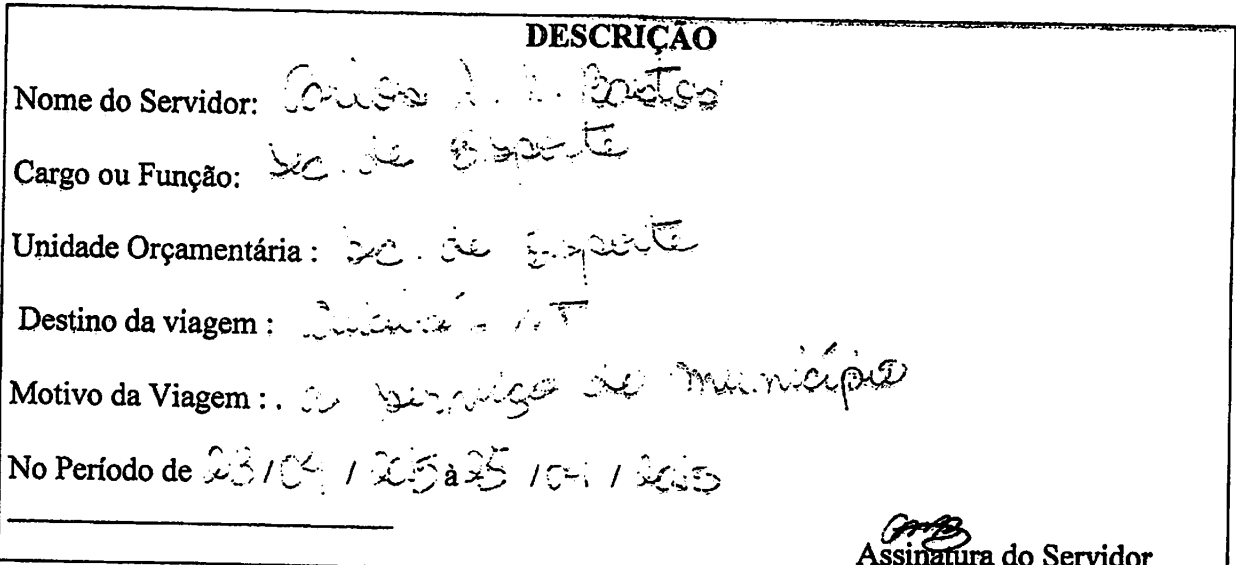 DESCRIÇÃO
Nome do Servidor: Carlos A. L. Bastos
Cargo ou Função: Sec. de Esporte
Unidade Orçamentária : Sec. de Esporte
Destino da viagem : Cuiabá - MT
Motivo da Viagem : . a serviço do município
No Período de 23 / 04 / 2015 à 25 / 04 / 2015
Assinatura do Servidor